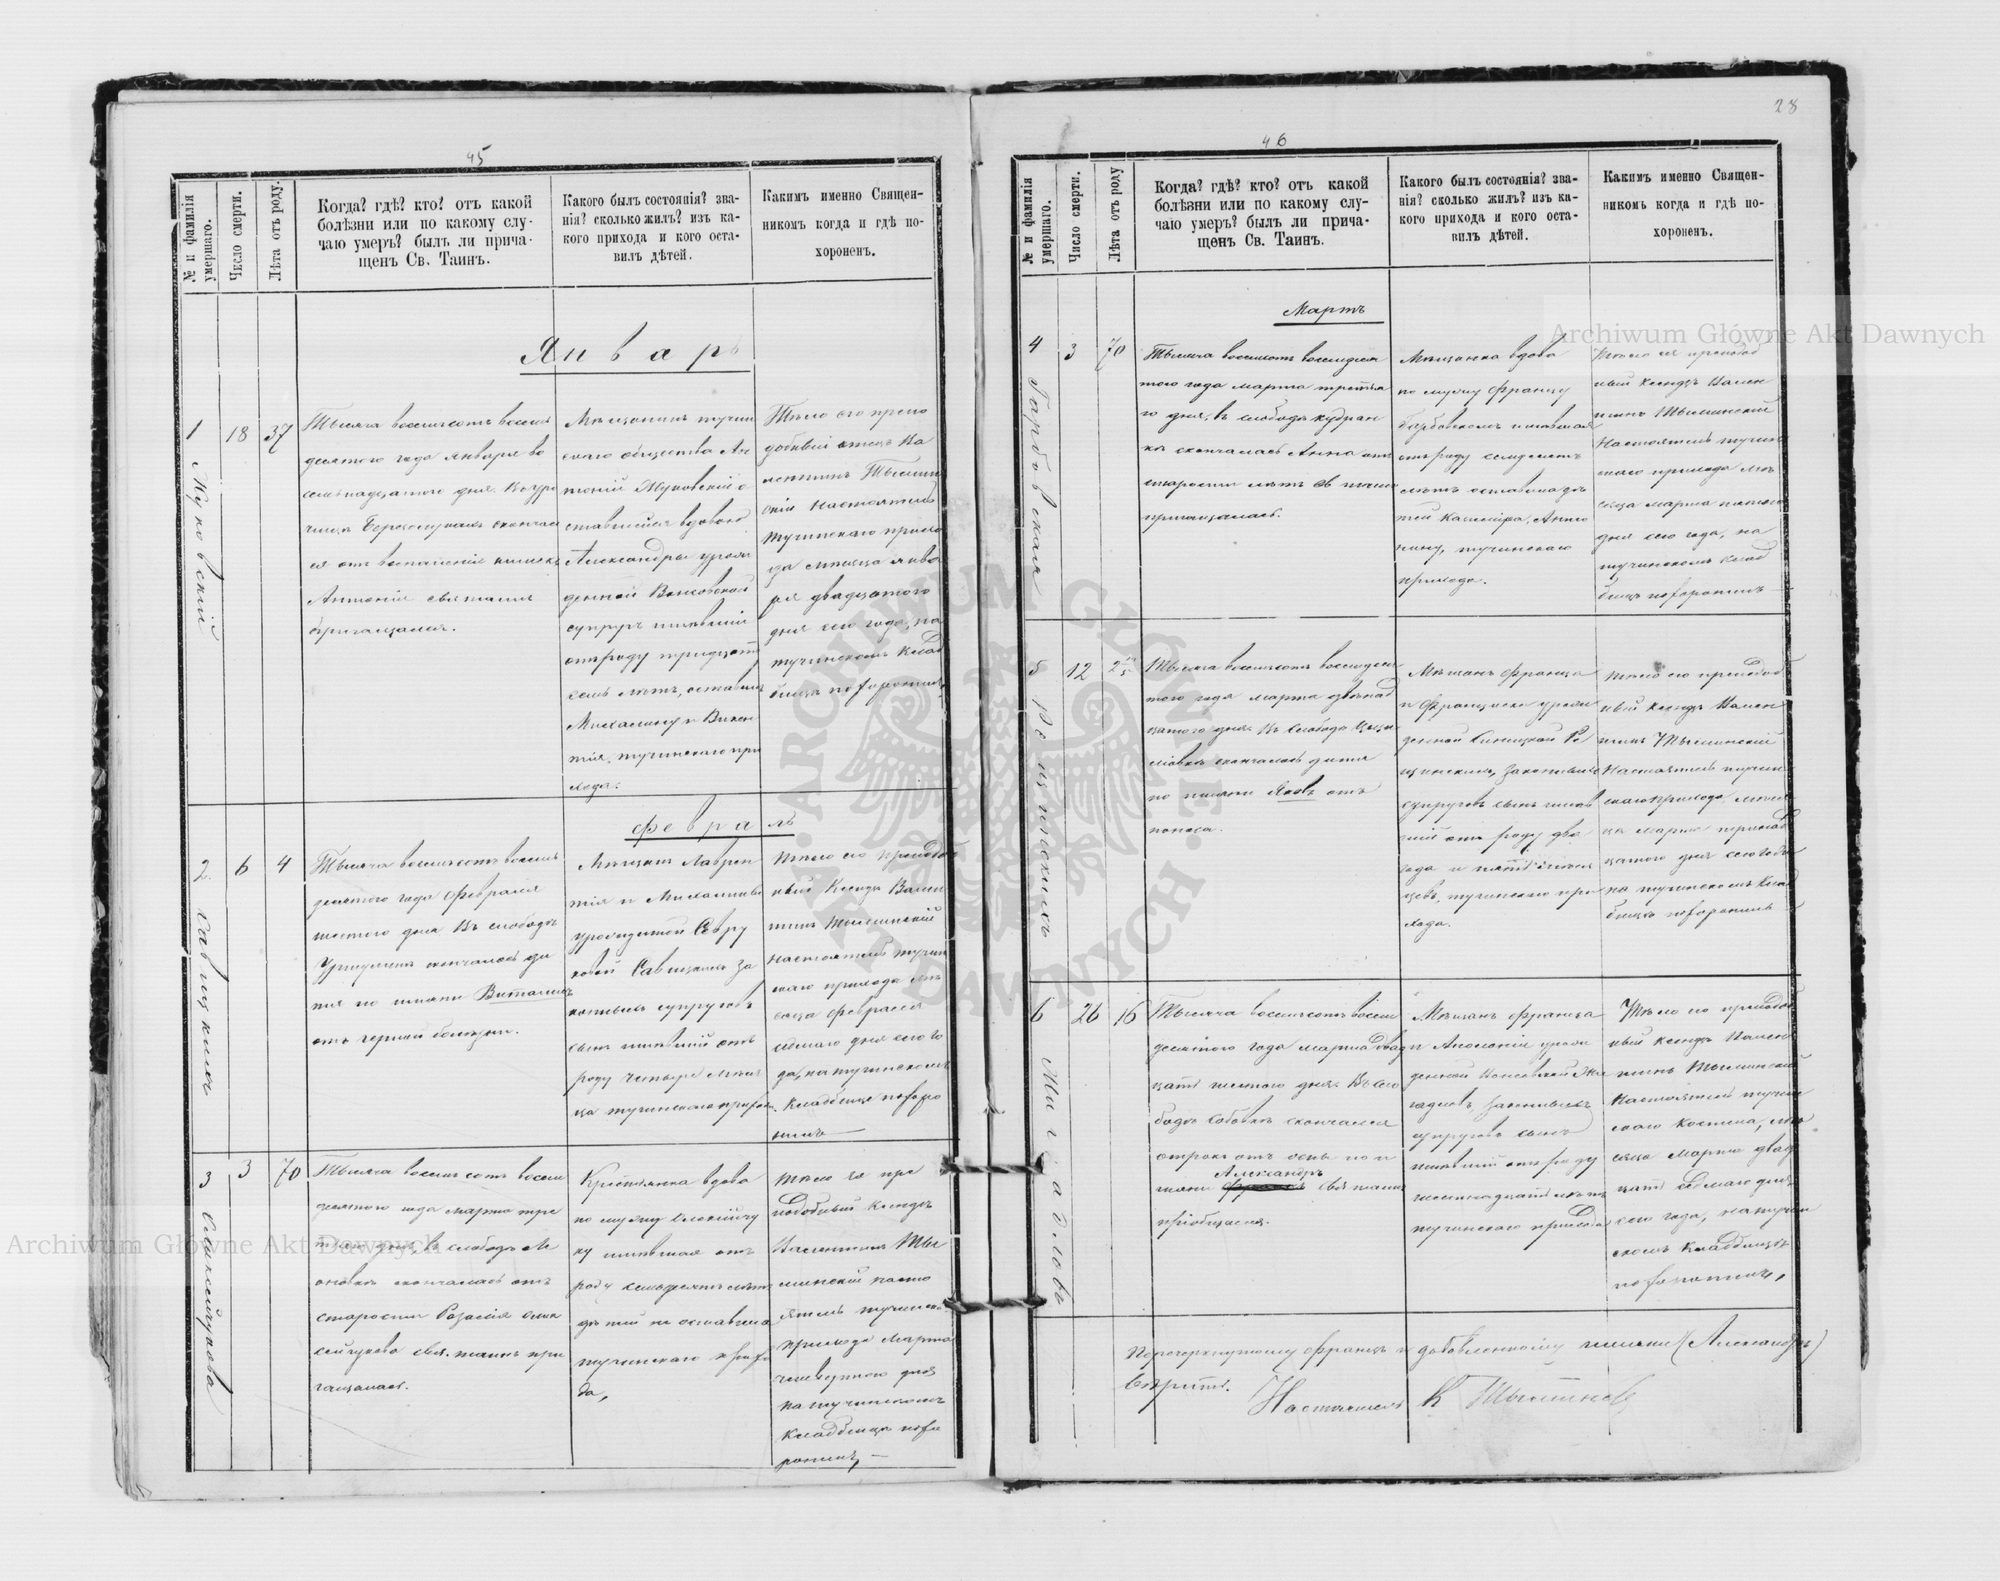 28
45
№ и фамилія умершаго.
Число смерти.
Лѣта отъ роду.
Когда? гдѣ? кто? отъ какой
болѣзни или по какому слу-
чаю умеръ? былъ ли прича-
щенъ Св. Таинъ.
Какого былъ состоянія? зва-
нія? сколько жилъ? изъ ка-
кого прихода и кого оста-
вилъ дѣтей.
Какимъ именно Священ-
никомъ когда и гдѣ по-
хороненъ.
Январь
1
Жуковскій
18
37
Тысяча восемьсотъ восемь
десятого года Января во
семьнадцатого дня. Въ
скончал
ся отъ воспаленія кишекъ
Антоній святыми
причащался.
Мѣщанинъ тучин
скаго общества Ан
тоній Жуковскій о
ставшейся вдовою
Александры урож
денной
супругъ жившій
отъ роду тридцать
семь лѣтъ, оставилъ
Михалину и Викен
тія, тучинскаго при
хода.
Тѣло его препо
добный отецъ Ва
лентинъ Тысмин
скій Настоятель
тучинскаго прихо
да мѣсяца янва
ря двадцатого
дня сего года, на
тучинскомъ клад
бищѣ похоронилъ,
Февраль
2.
Савицкихъ
6
4
Тысяча восемьсотъ восемь
десятого года Февраля
шестого дня Въ слободѣ
скончалось ди
тя по имени Виталисъ
отъ черной болѣзни.
Мѣщанъ Лаврен
тія и Михалины
урожденной
Савицкихъ за
конныхъ супруговъ
сынъ жившій отъ
роду четыре мѣся
ца тучинскаго прихода.
тѣло его преподоб
ный Ксендзъ Вален
тинъ Тысминскій
настоятель тучин
скаго прихода мѣ
сяца Февраля
седьмаго дня сего го
да, на тучинскомъ
Кладбищѣ похоро
нилъ —
3
3
70
Тысяча восемьсотъ восемь
десятого года марта тре
тьяго дня, въ слободѣ
скончалась отъ
старости Розалія
свят. таинъ при
чащалась.
Крестьянка вдова
по мужу
жившая отъ
роду семьдесятъ лѣтъ
дѣтей не оставила
тучинскаго прихо
да,
тѣло ея пре
подобный Ксендзъ
Валентинъ Тыс
минскій насто
ятель тучинска
прихода Марта
четвертого дня
на тучинскомъ
Кладбищѣ похо
ронилъ, —
46
№ и фамилія умершаго.
Число смерти.
Лѣта отъ роду
Когда? гдѣ? кто? отъ какой
болѣзни или по какому слу-
чаю умеръ? былъ ли прича-
щенъ Св. Таинъ.
Какого былъ состоянія? зва-
нія? сколько жилъ? изъ ка-
кого прихода и кого оста-
вилъ дѣтей.
Какимъ именно Священ-
никомъ когда и гдѣ по-
хороненъ.
Мартъ
4
Гарбовская
3
70
Тысяча восемьсотъ восемьдеся
того года марта третья
го дня, въ слободѣ кудран
кѣ скончалась Анна отъ
старости лѣтъ св. таинъ
причащалась.
Мѣщанка вдова
по мужу Францу
жившая
отъ роду семьдесятъ
лѣтъ оставила дѣ
тей Казиміра, Анто
нину, тучинскаго
прихода.
тѣло ея преподоб
ный Ксендзъ Вален
тинъ Тысминскій
Настоятель тучин
скаго прихода мѣ
сяца марта пятого
дня сего года, на
тучинскомъ клад
бищѣ похоронилъ —
5
12
2
Тысяча восемьсотъ восемьдеся
того года марта двѣнад
цатого дня. Въ Слободѣ
скончалось дитя
по имени Яковъ отъ
поноса.
Мѣщанъ Франца
и Францишки урож
денной Синицкой Ре
щинскихъ, законныхъ
супруговъ сынъ жив
шій отъ роду два
года и пять мѣся
цевъ, тучинскаго при
хода.
тѣло его преподоб
ный Ксендзъ Вален
тинъ Тысминскій
Настоятель тучин
скаго прихода, мѣся
ца марта тринад
цатого дня сего года
на тучинскомъ клад
бищѣ похоронилъ
6
26
16
Тысяча восемьсотъ восемь
десятого года марта двад
цать шестого дня. Въ сло
бодѣ скончался
отрокъ отъ по и
мени Александръ свв таинъ
пріобщался.
Мѣщанъ Франца
и Аполоніи урож
денной
законныхъ
супруговъ сынъ
жившій отъ роду
шестнадцать лѣтъ
тучинскаго прихода
Тѣло го преподоб
ный Ксендзъ Вален
тинъ Тысминскій
Настоятель тучин
скаго Костела, мѣ
сяца Марта двад
цать седьмаго дня
сего года, на тучин
скомъ Кладбищѣ
похоронилъ,
Перечеркнутому Францъ и добовленному имени (Александръ)
вѣрить.
Настоятель К Тысминскій
Archiwum Główne Akt Dawnych
Archiwum Główne Akt Dawnych
ARCHIWUM GŁÓWNE AKT DAWNYCH